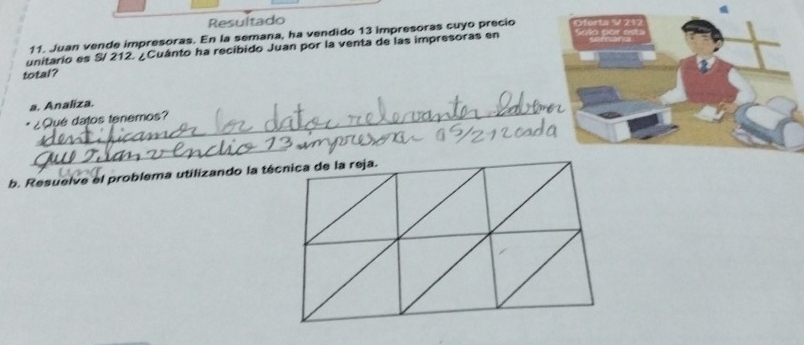 Resultado
Oferta S/ 212
Solo por esta
semana
11. Juan vende impresoras. En la semana, ha vendido 13 impresoras cuyo precio
unitario es S/ 212. ¿Cuánto ha recibido Juan por la venta de las impresoras en
total?
a. Analiza.
• ¿Qué datos tenemos?
identificamos los datos relevantes. Sabemos
que Juan vendio 13 impresoras a S/212 cada
una
b. Resuelve el problema utilizando la técnica de la reja.